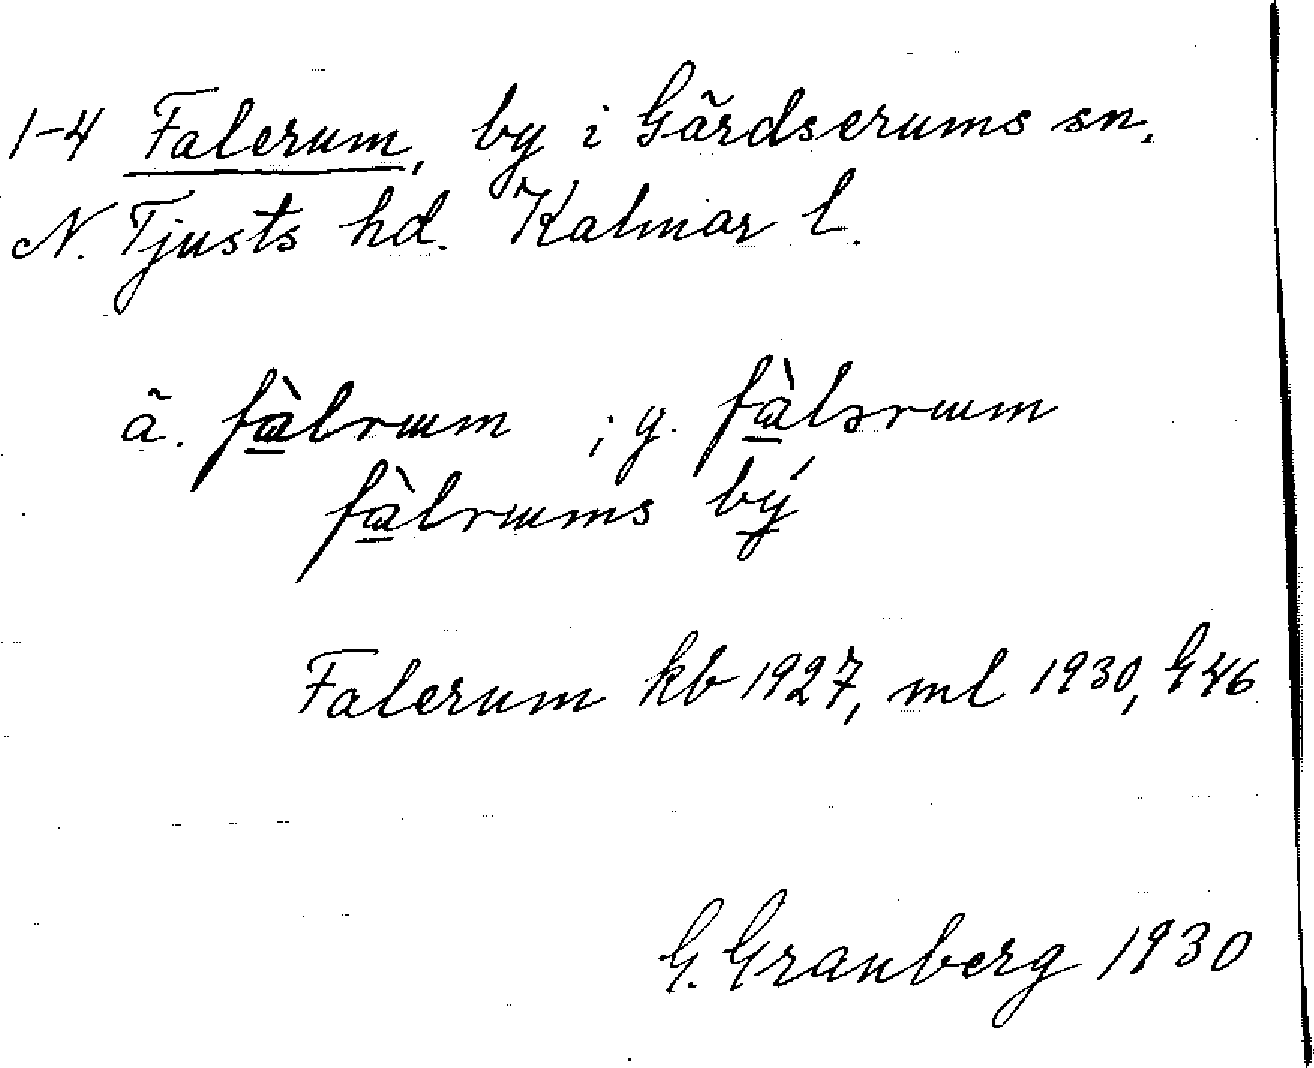 1-4 Falerum, by i Gärdserums sn.
N. Tjusts hd. Kalmar l.
ä. fàlrɯm ; y. fàlərɯm
fàlrɯms bý
Falerum kb 1927, ml 1930, G46
G. Granberg 1930